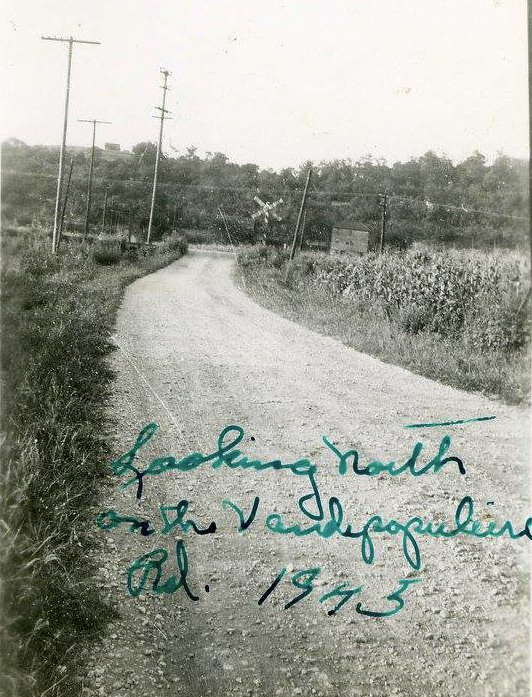 Looking North
on the Vandepopuliere
Rd. 1945